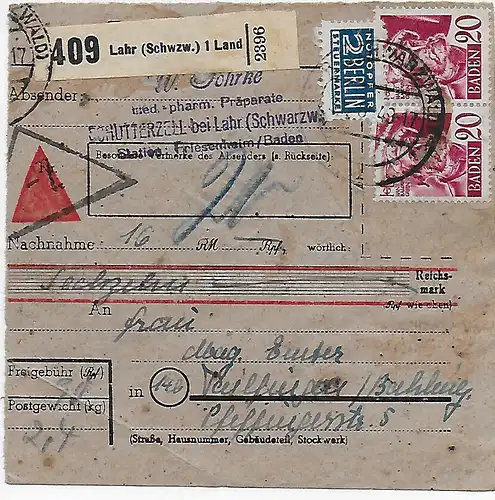 WALD)
17
409 Lahr (Schwzw.) 1 Land
2396
NOTOPFER
2 BERLIN
STEUERMARKE
20
BADEN
20
BADEN
Absender
med.-pharm. Präparate
SCHUTTERZELL bei Lahr (Schwarzw.)
Station: Friesenheim/Baden
Besondere Vermerke des Absenders (s. Rückseite)
Nachnahme: 16 RM Rpf, wörtlich:
Sechzehn
Reichs-
mark
(Rpf wie oben)
An
Frau
Freigebühr (Rpf)
Postgewicht (kg)
2,4
in (14b)
Pfeffingerstr. 5
(Straße, Hausnummer, Gebäudeteil, Stockwerk)